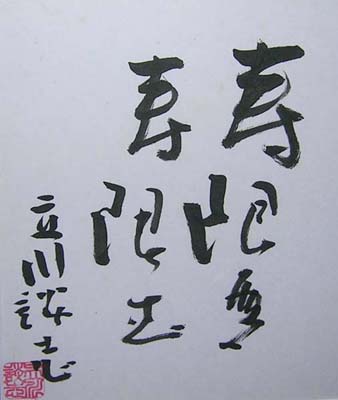 寿限無
寿限無
立川談志